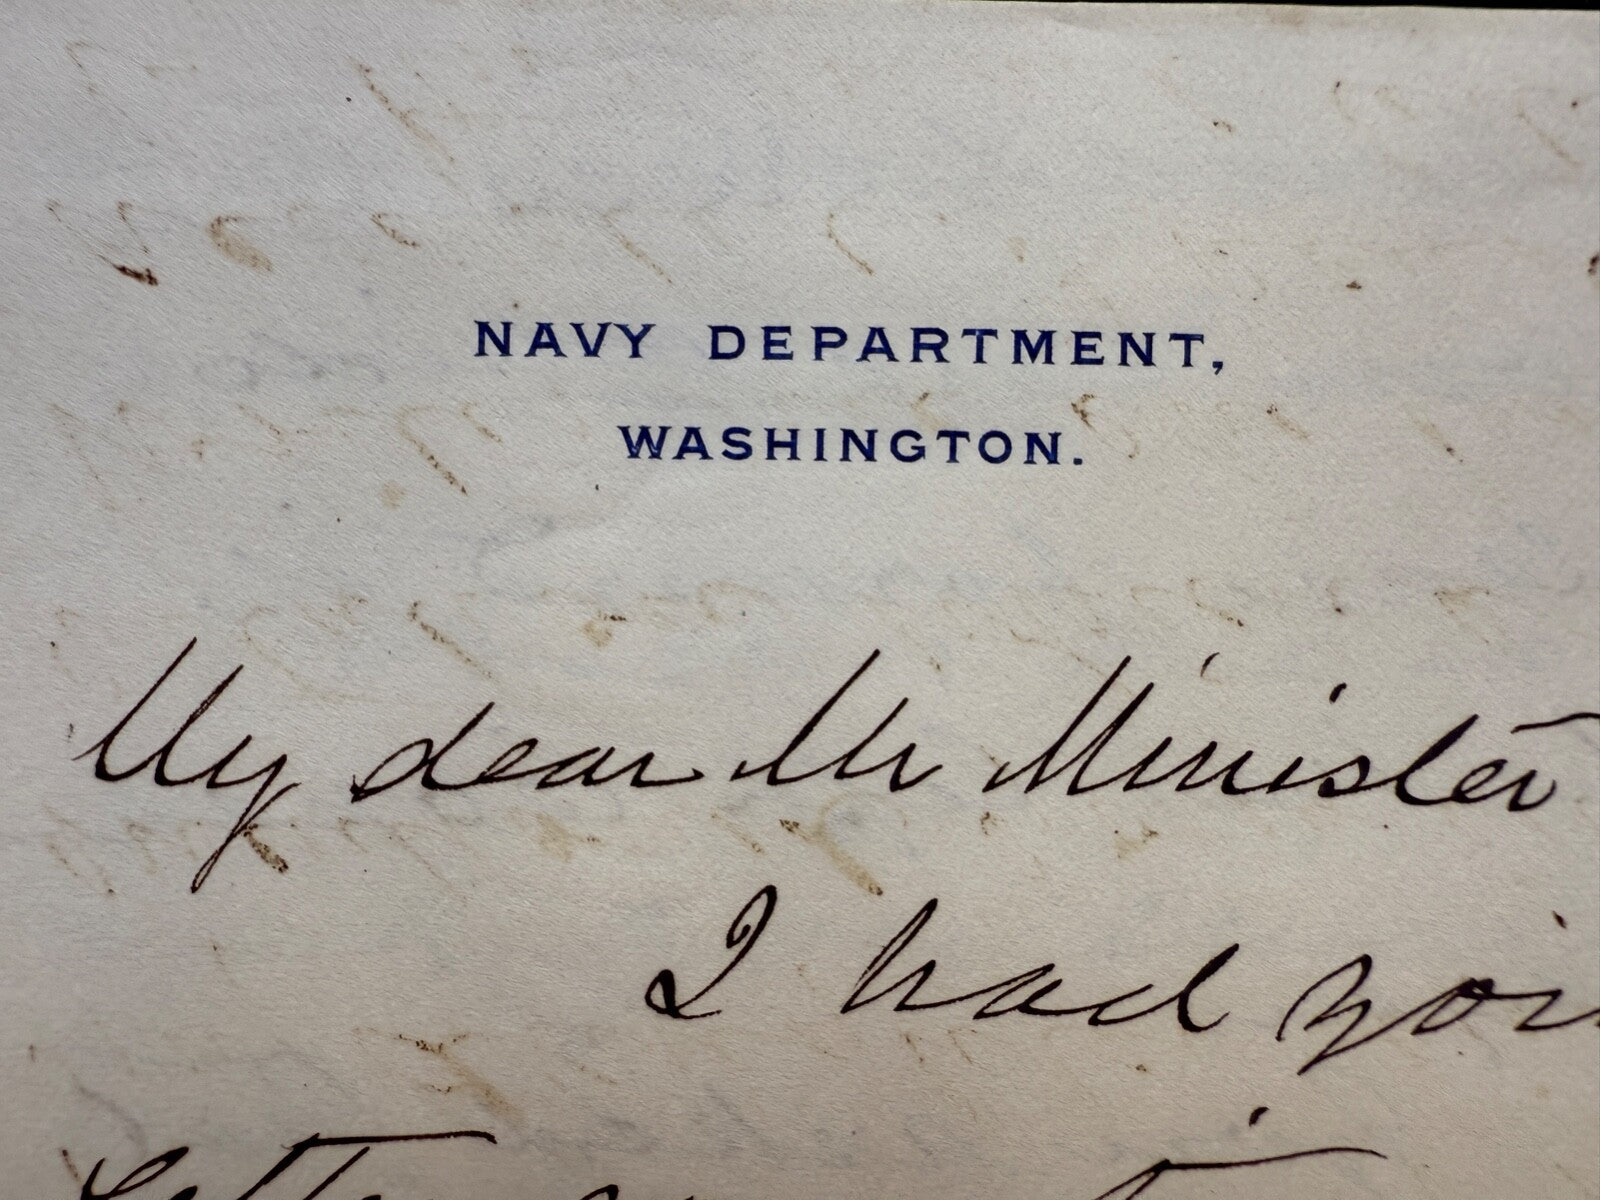 NAVY DEPARTMENT,
WASHINGTON.
My dear Mr Minister
I had your